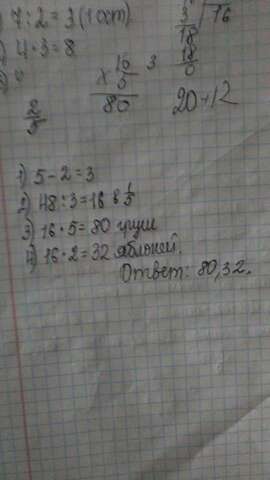 7:2=3(1ост)
4·3=8
2/5
×16
5
80
3
3
18
18
0
16
20+12
1) 5-2=3
2) 48:3=16 в 1/5
3) 16·5=80 груш
4) 16·2=32 яблоней.
Ответ: 80,32.